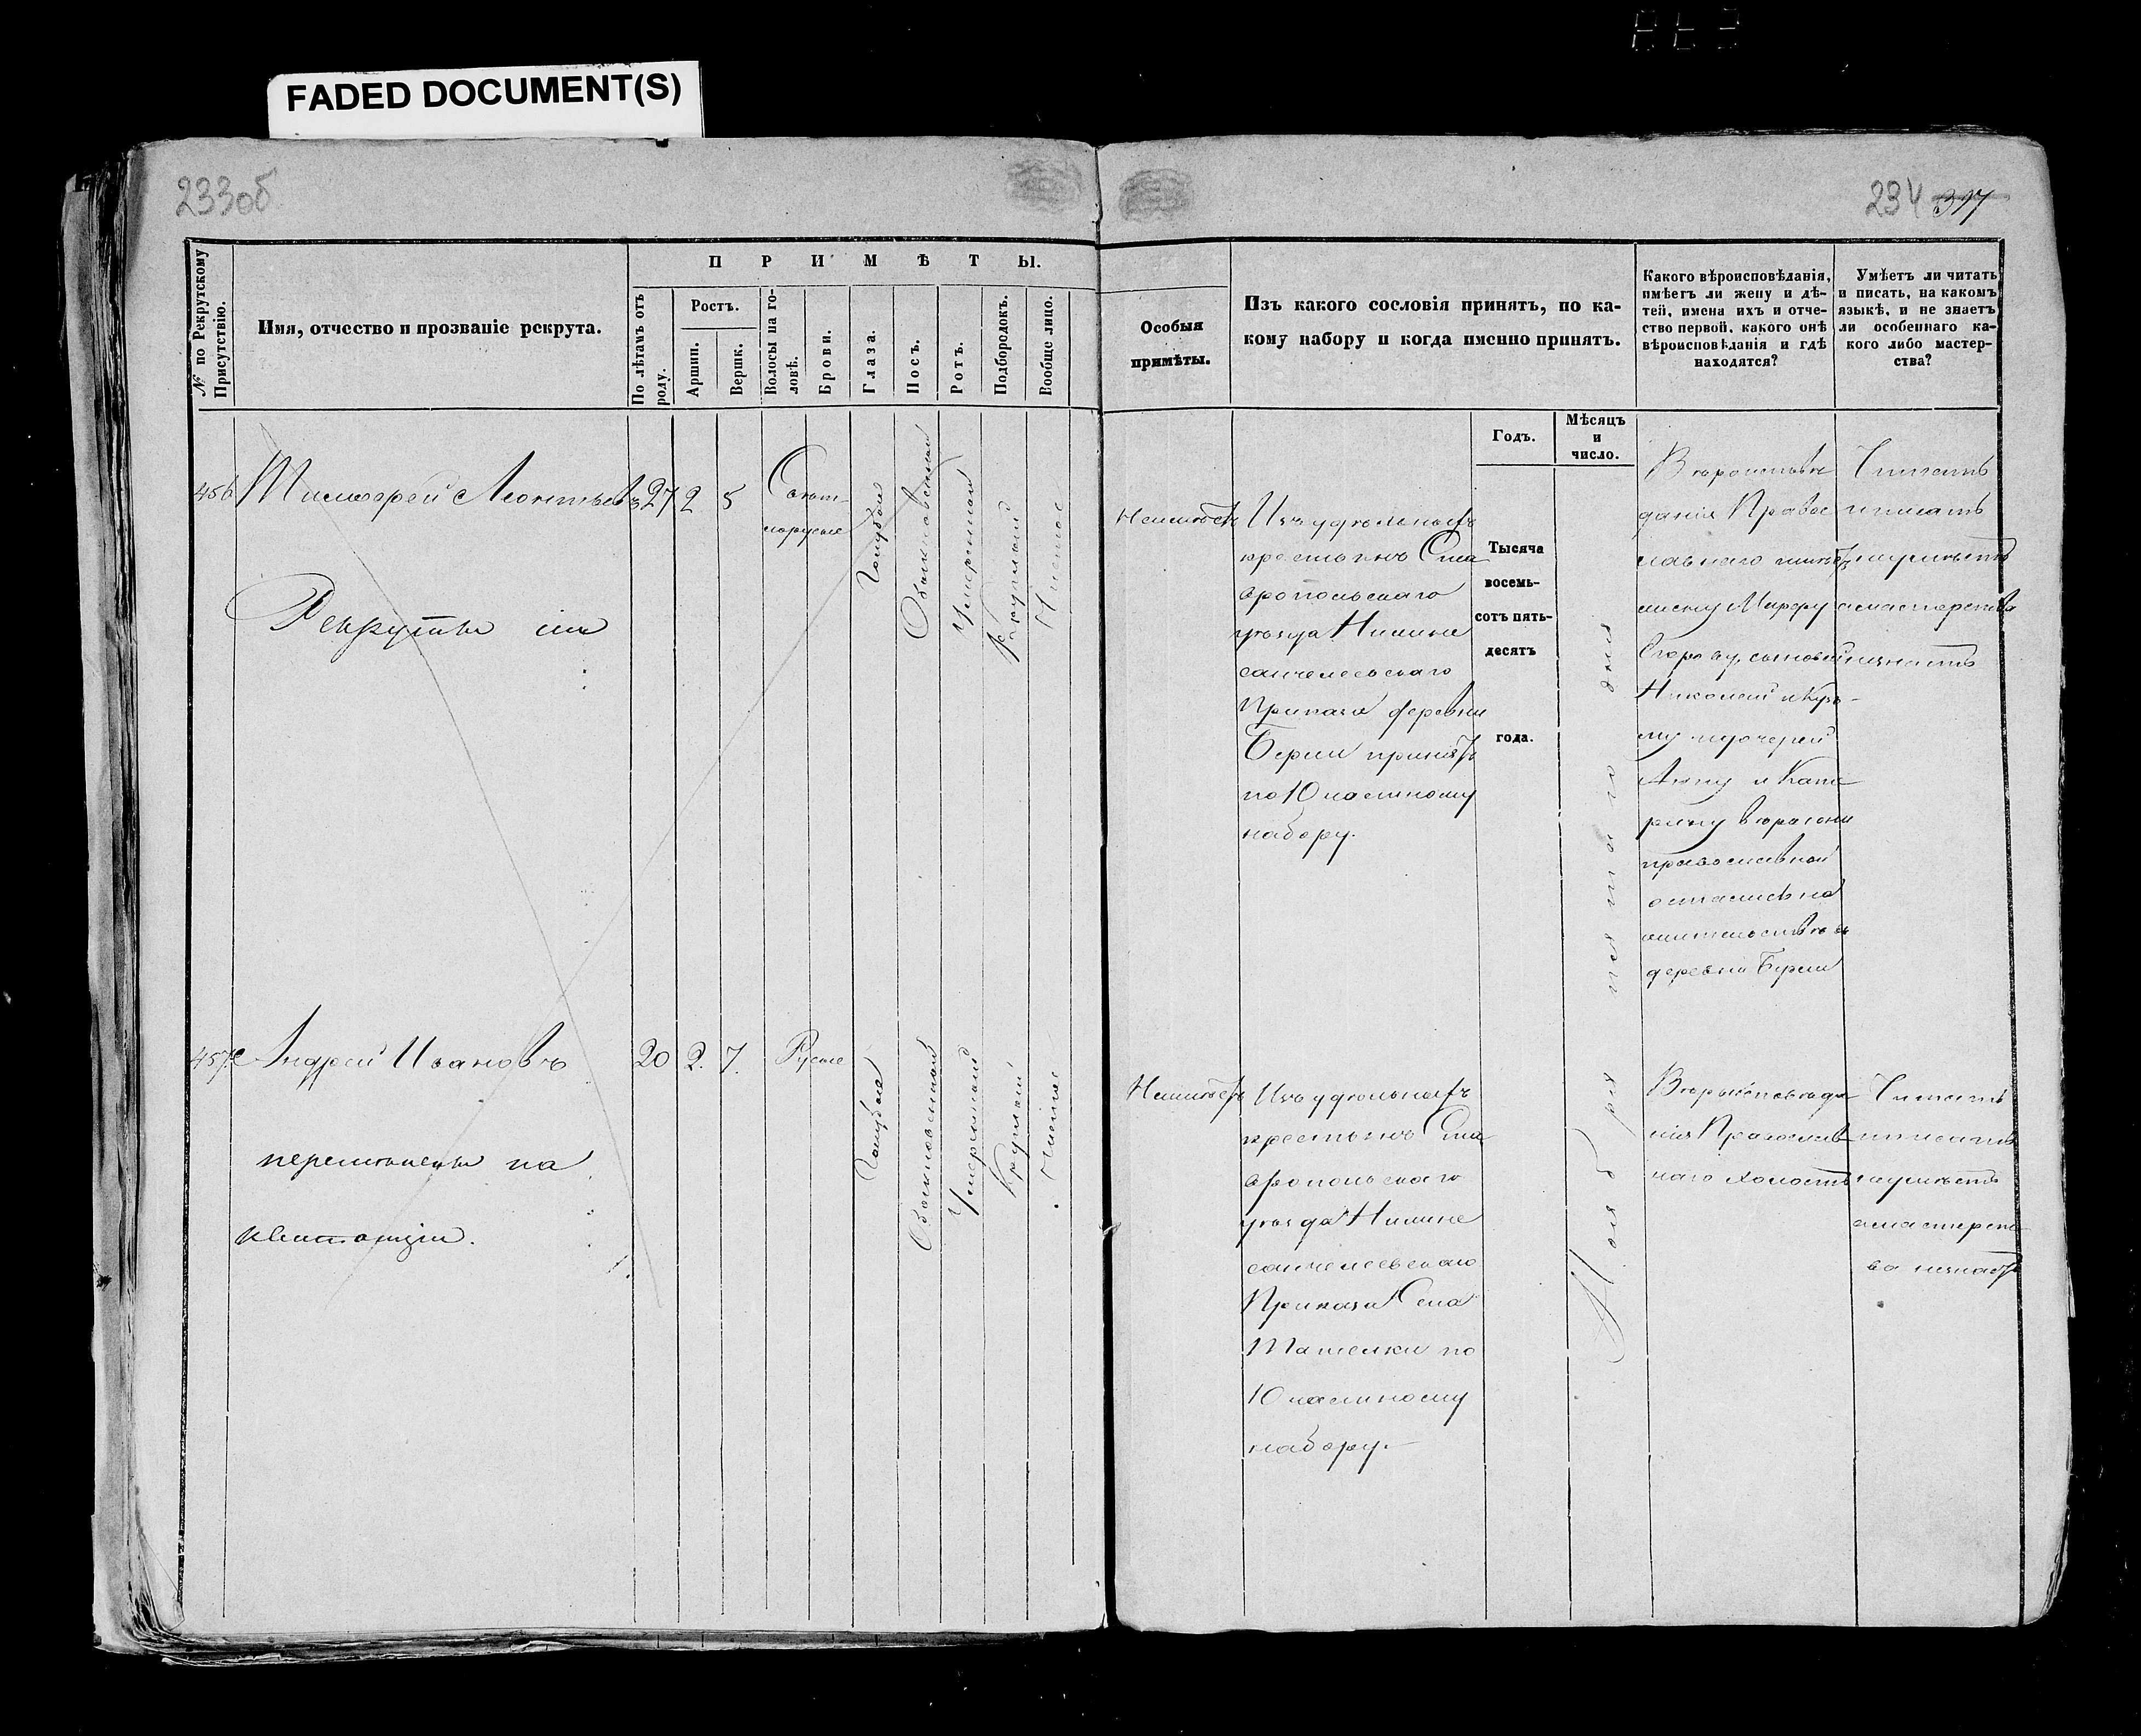 FADED DOCUMENT(S)
233об
234 317
№ по Рекрутскому Присутствію.
Имя, отчество и прозваніе рекрута.
ПРИМѢТЫ.
По лѣтамъ отъ роду.
Ростъ.
Аршин.
Вершк.
Волосы на головѣ.
Брови.
Глаза.
Носъ.
Ротъ.
Подбородокъ.
Вообще лицо.
Особыя
примѣты.
Изъ какого сословія принятъ, по ка-
кому набору и когда именно принятъ.
Годъ.
Мѣсяцъ
и
число.
Какого вѣроисповѣданія,
имѣетъ ли жену и дѣ-
тей, имена ихъ и отче-
ство первой, какого онѣ
вѣроисповѣданія и гдѣ
находятся?
Умѣетъ ли читать
и писать, на какомъ
языкѣ, и не знаетъ
ли особеннаго ка-
кого либо мастер-
ства?
456 Тимофей Леонтьевъ 27 2 5
Свѣт-
лорусые
Голубые
Обыкновенный
Умеренный
Круглый
Чистое
Рекрутъ
Неимѣетъ
Изъ удѣльныхъ
крестьянъ Ста
вропольскаго
уѣзда Нижне
санчелеевскаго
Приказа деревни
принятъ
по 10 частному
набору.
Тысяча
восемь-
сотъ пять-
десятъ
года.
Ноября пятаго дня
Вѣроисповѣ
данія Правос
лавнаго имѣетъ
жену Марфу
Егорову, сыновей
Николая и Кузь-
му и дочерей
Анну и Кате
рину вѣры они
православной
остались на
жительствѣ въ
деревни
Читать
и писать
неумѣетъ
а мастерства
незнаетъ
457 Андрей Ивановъ 20 2. 7. Русые
Голубые
Обыкновенный
Умеренный
Круглый
Чистое
на
квитанціи.
Неимѣетъ
Изъ удѣльныхъ
крестьянъ Ста
вропольскаго
уѣзда Нижне
санчелеевскаго
Приказа Села
Ташелки по
10 частному
набору.
Вѣроисповѣда
нія Православ
наго холостъ
Читать
и писать
неумѣетъ
а мастерст
ва незнаетъ